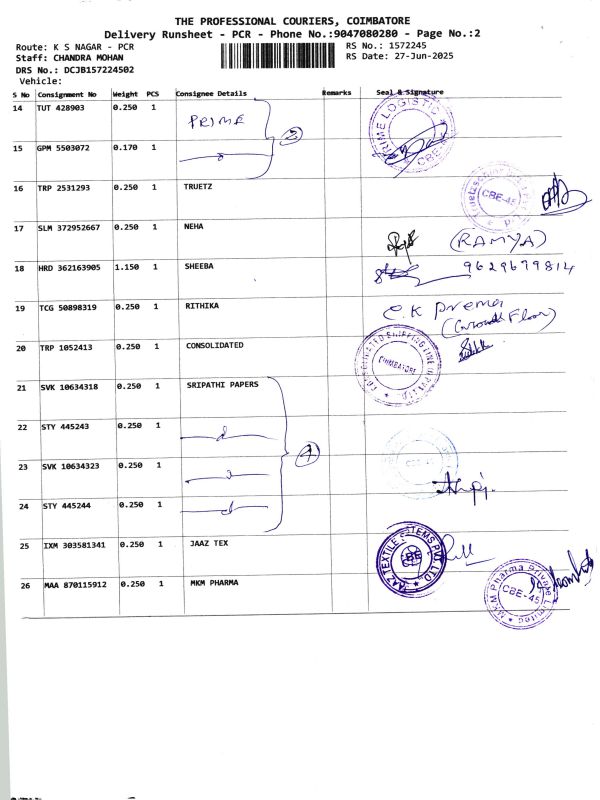 THE PROFESSIONAL COURIERS, COIMBATORE
Delivery Runsheet - PCR - Phone No.:9047080280 - Page No.:2
Route: K S NAGAR - PCR
RS No.: 1572245
Staff: CHANDRA MOHAN
RS Date: 27-Jun-2025
DRS No.: DCJB157224502
Vehicle:
S No Consignment No Weight PCS Consignee Details Remarks Seal & Signature
14 TUT 428903 0.250 1 PRIME
PRIME LOGISTIC CBE
2
15 GPM 5503072 0.170 1
16 TRP 2531293 0.250 1 TRUETZ
CBE-45
17 SLM 372952667 0.250 1 NEHA (RAMYA)
18 HRD 362163905 1.150 1 SHEEBA 9629679814
19 TCG 50898319 0.250 1 RITHIKA C.K Prema
(Ground Floor)
20 TRP 1052413 0.250 1 CONSOLIDATED
CONSOLIDATED SHIPPING LINE COIMBATORE
21 SVK 10634318 0.250 1 SRIPATHI PAPERS
22 STY 445243 0.250 1
4
23 SVK 10634323 0.250 1
CBE-45
24 STY 445244 0.250 1
25 IXM 303581341 0.250 1 JAAZ TEX
JAAZ TEXTILE SYSTEMS PVT. LTD. CBE
26 MAA 870115912 0.250 1 MKM PHARMA
MKM Pharma Private Limited CBE-45